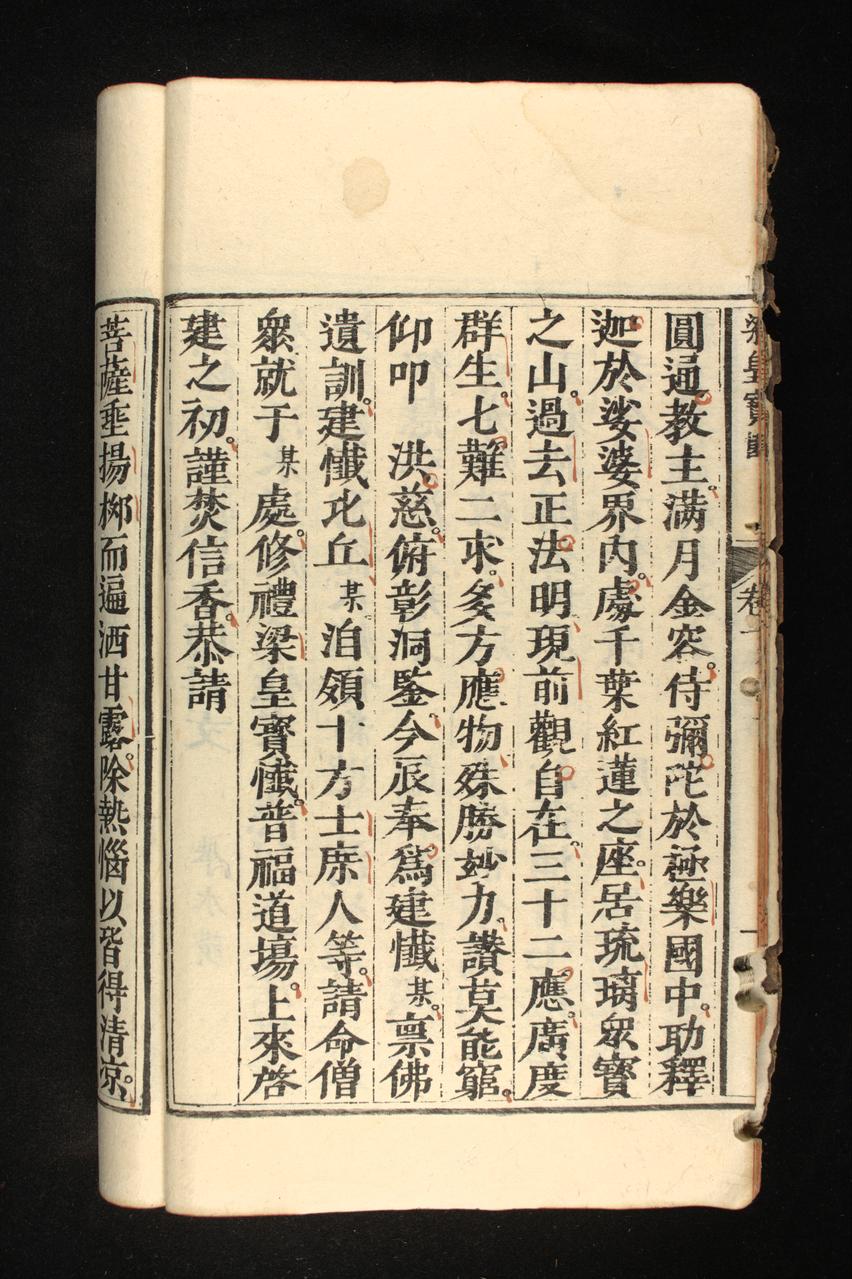 梁皇寶懺
卷一
圓通教主。满月金容。侍彌陀於極樂國中。助釋
迦於娑婆界内。處千葉紅蓮之座。居琉璃眾寶
之山。過去正法明。現前觀自在。三十二應。廣度
群生。七難二求。多方應物。殊勝妙力。讚莫能窮。
仰叩 洪慈。俯彰洞鑒。今辰奉爲建懺某。禀佛
遺訓。建懺比丘某洎領十方士庶人等。請命僧
眾就于某處。修禮梁皇寶懺。普福道場。上來啓
建之初。謹焚信香。恭請
菩薩垂揚柳而遍洒甘露。除熱惱以皆得清凉。